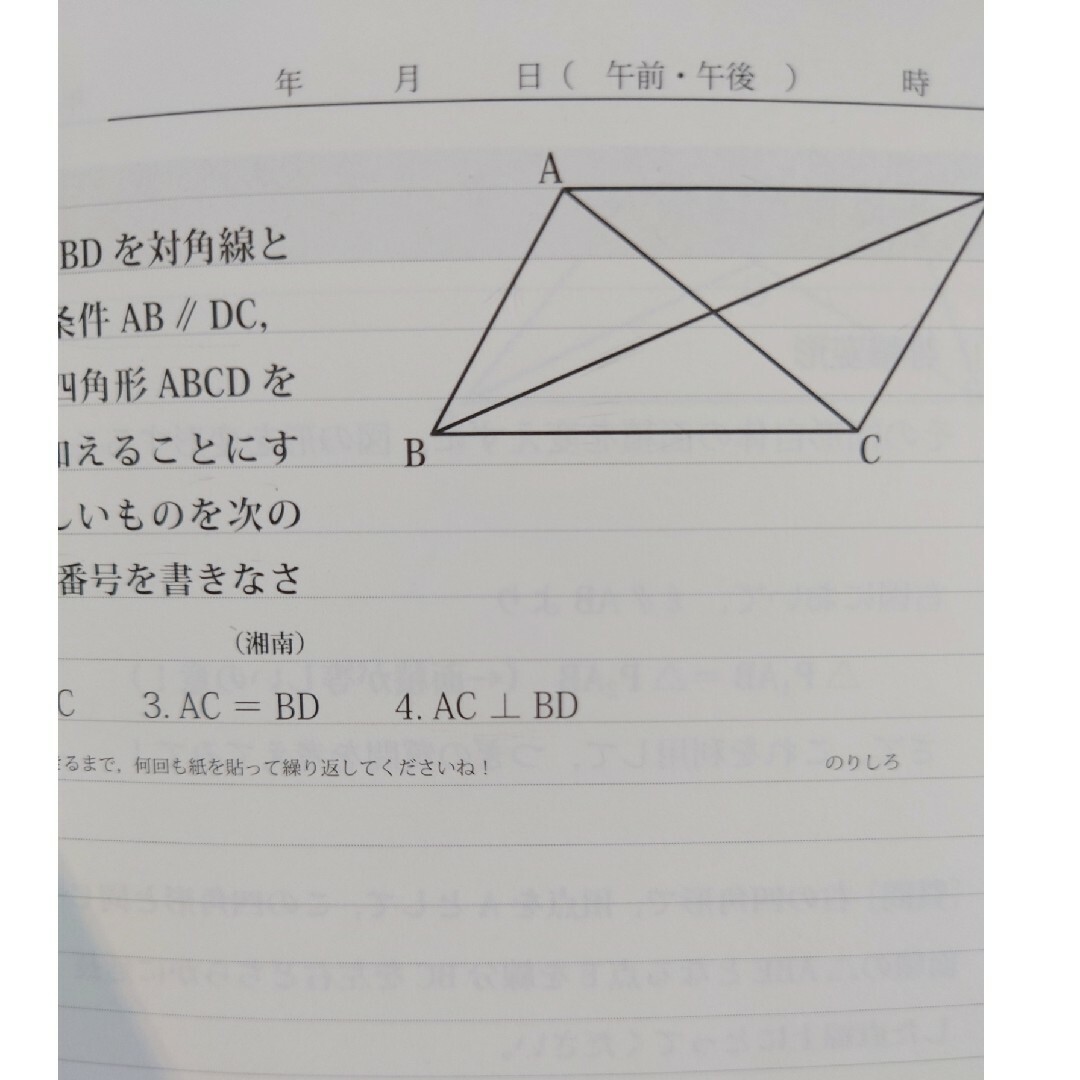 年 月 日（ 午前・午後 ） 時
A
BD を対角線と
条件 AB // DC,
四角形 ABCD を
加えることにす
しいものを次の
番号を書きなさ
B
C
（湘南）
C 3. AC = BD 4. AC ⊥ BD
るまで，何回も紙を貼って繰り返してくださいね！ のりしろ